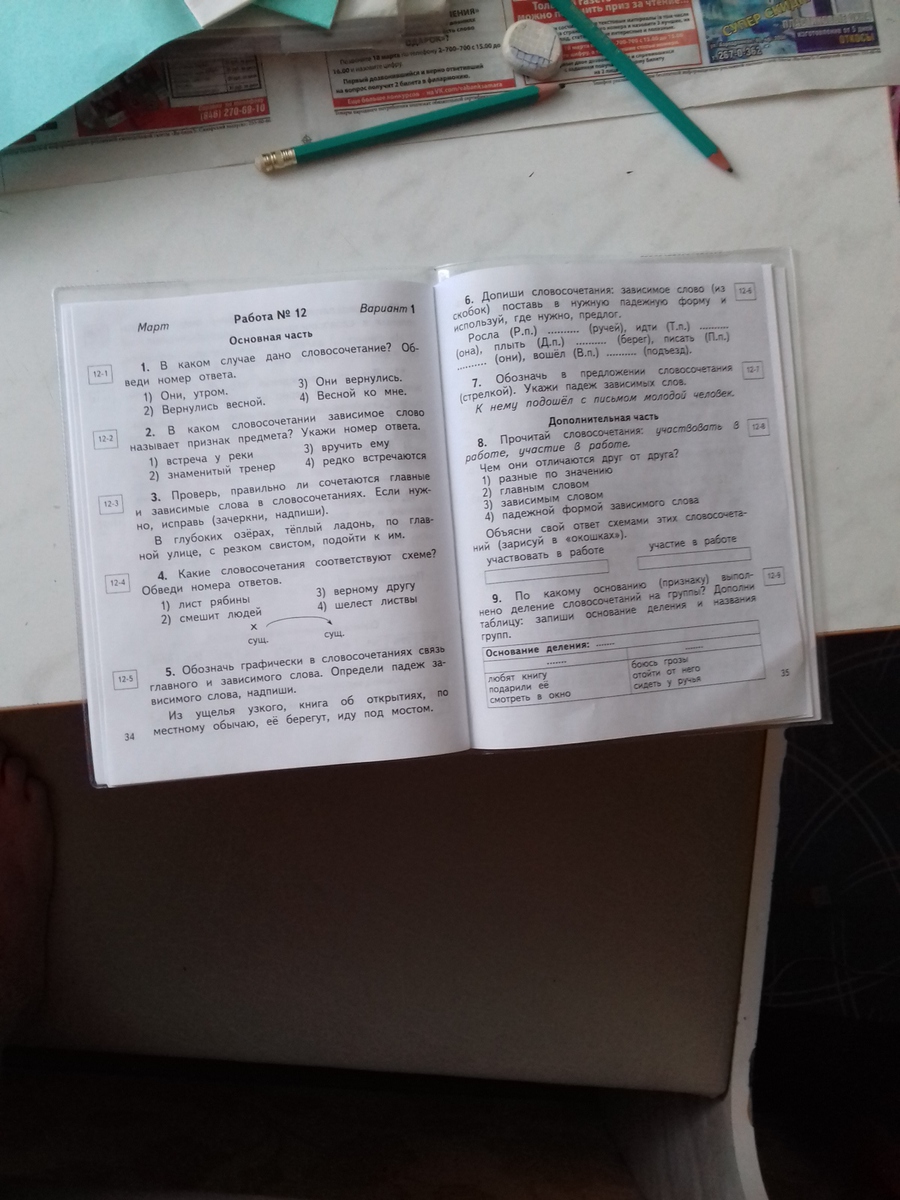 ЕНИЯ»
ДАРОК»?
Позвоните 18 марта по телефону 2-700-700 с 15.00 до
16.00 и назовите цифру
Первый дозвонившийся и верно ответивший
на вопрос получит 2 билета в филармонию.
Еще больше конкурсов - на VK.com/
(846) 270-69-10
приз за чтение
СУПЕР
267-0-362
ИЗГОТОВЛЕНИЕ ОТ 5 ДНЕЙ
ОТКОСЫ
Март
Работа № 12
Вариант 1
Основная часть
12-1
1. В каком случае дано словосочетание? Об-
веди номер ответа.
1) Они, утром.
3) Они вернулись.
2) Вернулись весной.
4) Весной ко мне.
12-2
2. В каком словосочетании зависимое слово
называет признак предмета? Укажи номер ответа.
1) встреча у реки
3) вручить ему
2) знаменитый тренер
4) редко встречаются
12-3
3. Проверь, правильно ли сочетаются главные
и зависимые слова в словосочетаниях. Если нуж-
но, исправь (зачеркни, надпиши).
В глубоких озёрах, тёплый ладонь, по глав-
ной улице, с резком свистом, подойти к им.
12-4
4. Какие словосочетания соответствуют схеме?
Обведи номера ответов.
1) лист рябины
3) верному другу
2) смешит людей
4) шелест листвы
х
сущ.
сущ.
12-5
5. Обозначь графически в словосочетаниях связь
главного и зависимого слова. Определи падеж за-
висимого слова, надпиши.
Из ущелья узкого, книга об открытиях, по
местному обычаю, её берегут, иду под мостом.
34
12-6
6. Допиши словосочетания: зависимое слово (из
скобок) поставь в нужную падежную форму и
используй, где нужно, предлог.
Росла (Р.п.) .......... (ручей), идти (Т.п.) .........
(она), плыть (Д.п.) .......... (берег), писать (П.п.)
......... (они), вошёл (В.п.) ......... (подъезд).
12-7
7. Обозначь в предложении словосочетания
(стрелкой). Укажи падеж зависимых слов.
К нему подошёл с письмом молодой человек.
Дополнительная часть
12-8
8. Прочитай словосочетания: участвовать в
работе, участие в работе.
Чем они отличаются друг от друга?
1) разные по значению
2) главным словом
3) зависимым словом
4) падежной формой зависимого слова
Объясни свой ответ схемами этих словосочета-
ний (зарисуй в «окошках»).
участвовать в работе
участие в работе
12-9
9. По какому основанию (признаку) выпол-
нено деление словосочетаний на группы? Дополни
таблицу: запиши основание деления и названия
групп.
Основание деления: ......
.......
.......
любят книгу
боюсь грозы
подарили её
отойти от него
смотреть в окно
сидеть у ручья
35